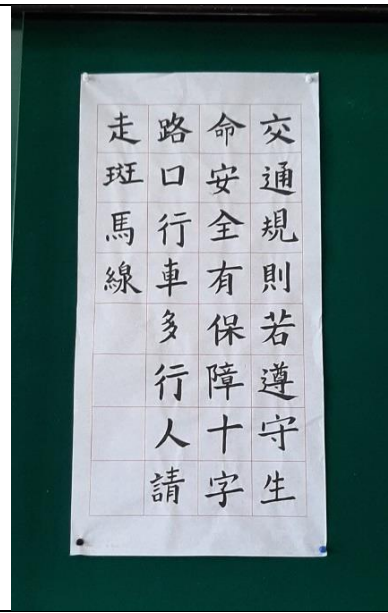 交通規則若遵守生
命安全有保障十字
路口行車多行人請
走斑馬線